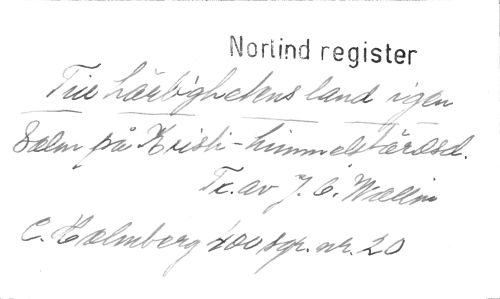 Norlind register
Till härlighetens land igen
Salm på Kristi-himmelsfärdsd.
Tr. av J. C. Wallin
C. Holmberg 400 sgr. nr. 20